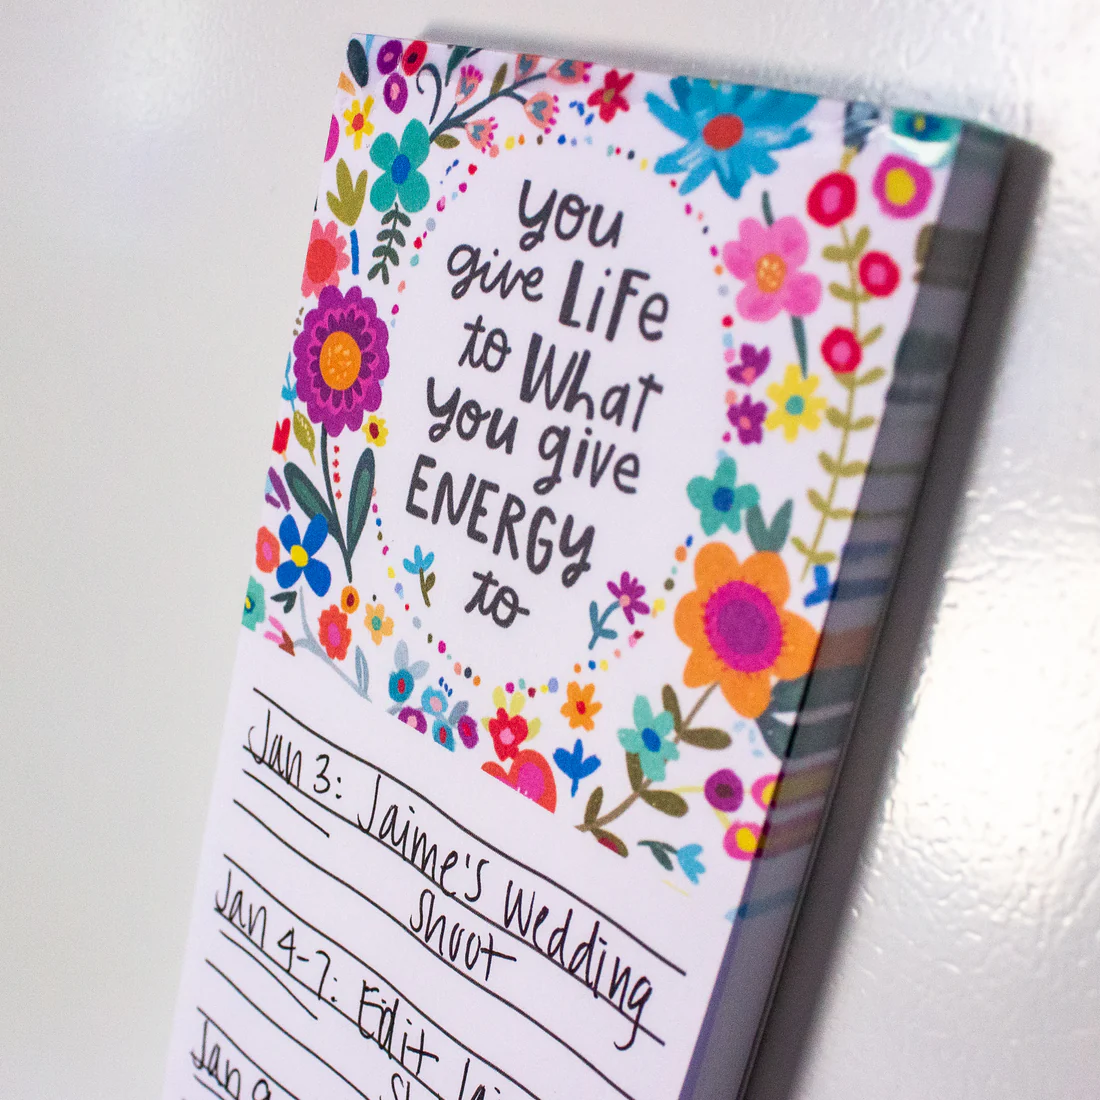 you
give LiFe
to What
you give
ENERGY
to
Jan 3: Jaime's Wedding
Shoot
Jan 4-7: Edit
Jan